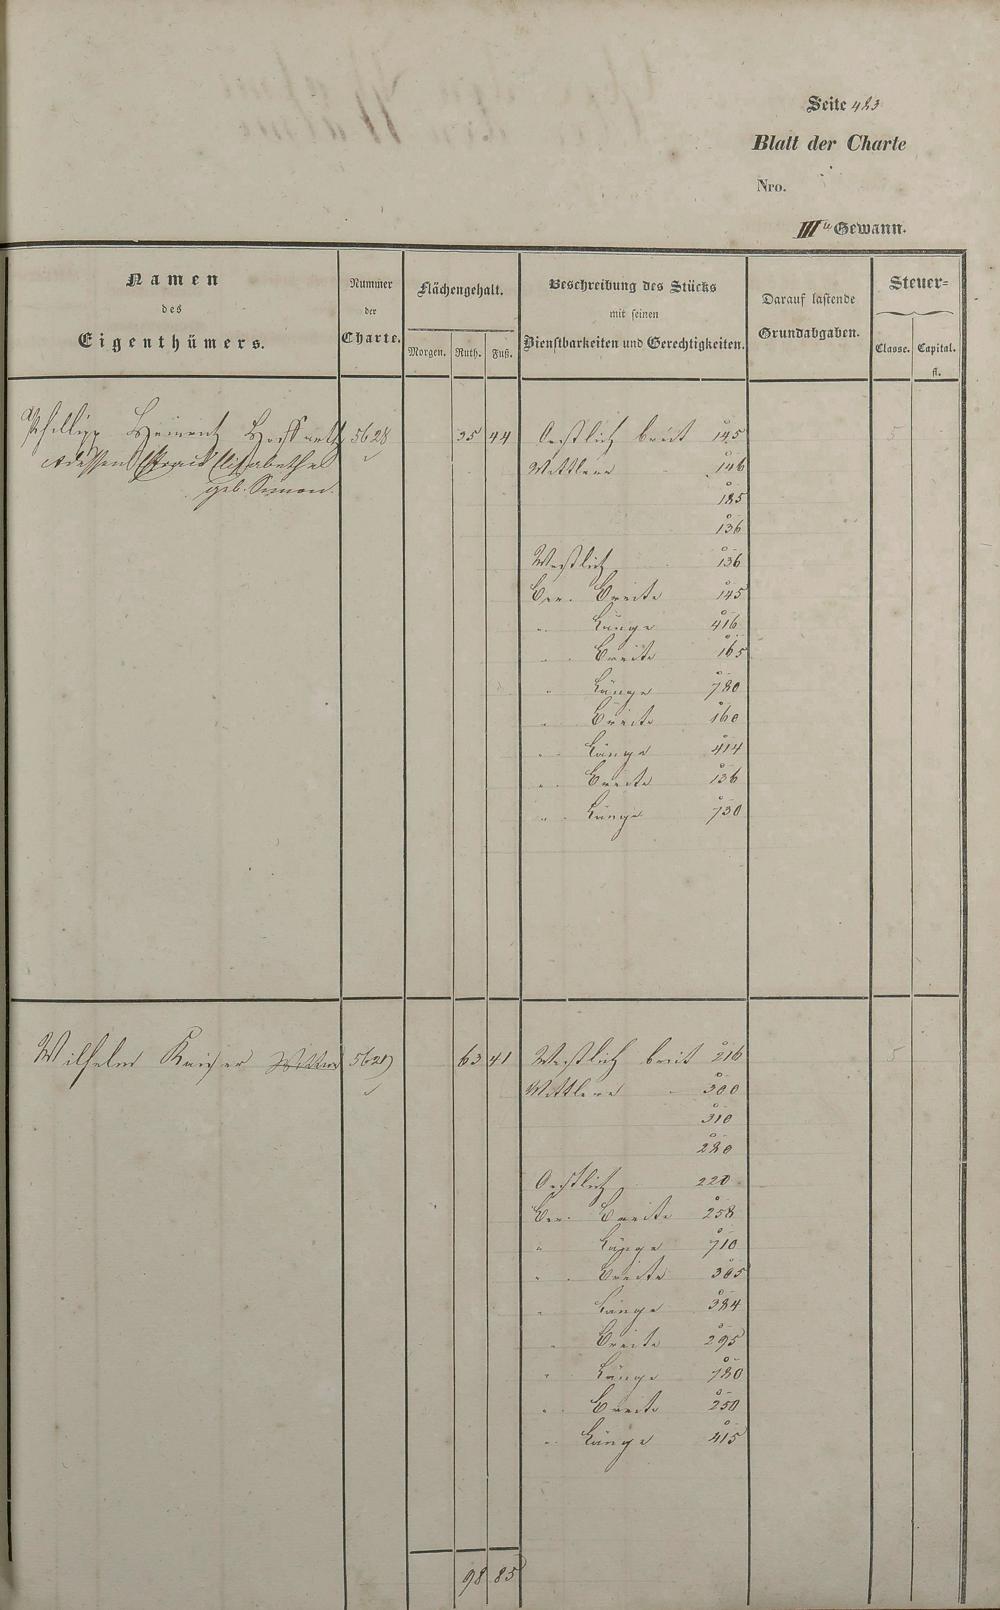 Seite 423
Blatt der Charte
Nro.
III te Gewann.
Namen
des
Eigenthümers.
Nummer
der
Charte.
Flächengehalt.
Morgen. Ruth. Fuß.
Beschreibung des Stücks
mit seinen
Dienstbarkeiten und Gerechtigkeiten.
Darauf lastende
Grundabgaben.
Steuer=
Classe. Capital.
fl.
Phillipp Heinrich 5628 35 44 Oestlich breit 145 5
Elisabetha Mittlere 146
geb. Simon. 185
136
Westlich 136
Ber. Breite 145
" Länge 416
" Breite 165
" Länge 780
" Breite 160
" Länge 414
" Breite 136
" Länge 730
Wilhelm Kaiser 5629 63 41 Westlich breit 216 5
Mittlere 300
310
280
Oestlich 220
Ber. Breite 258
" Länge 710
" Breite 305
" Länge 384
" Breite 295
" Länge 780
" Breite 250
" Länge 415
98 85